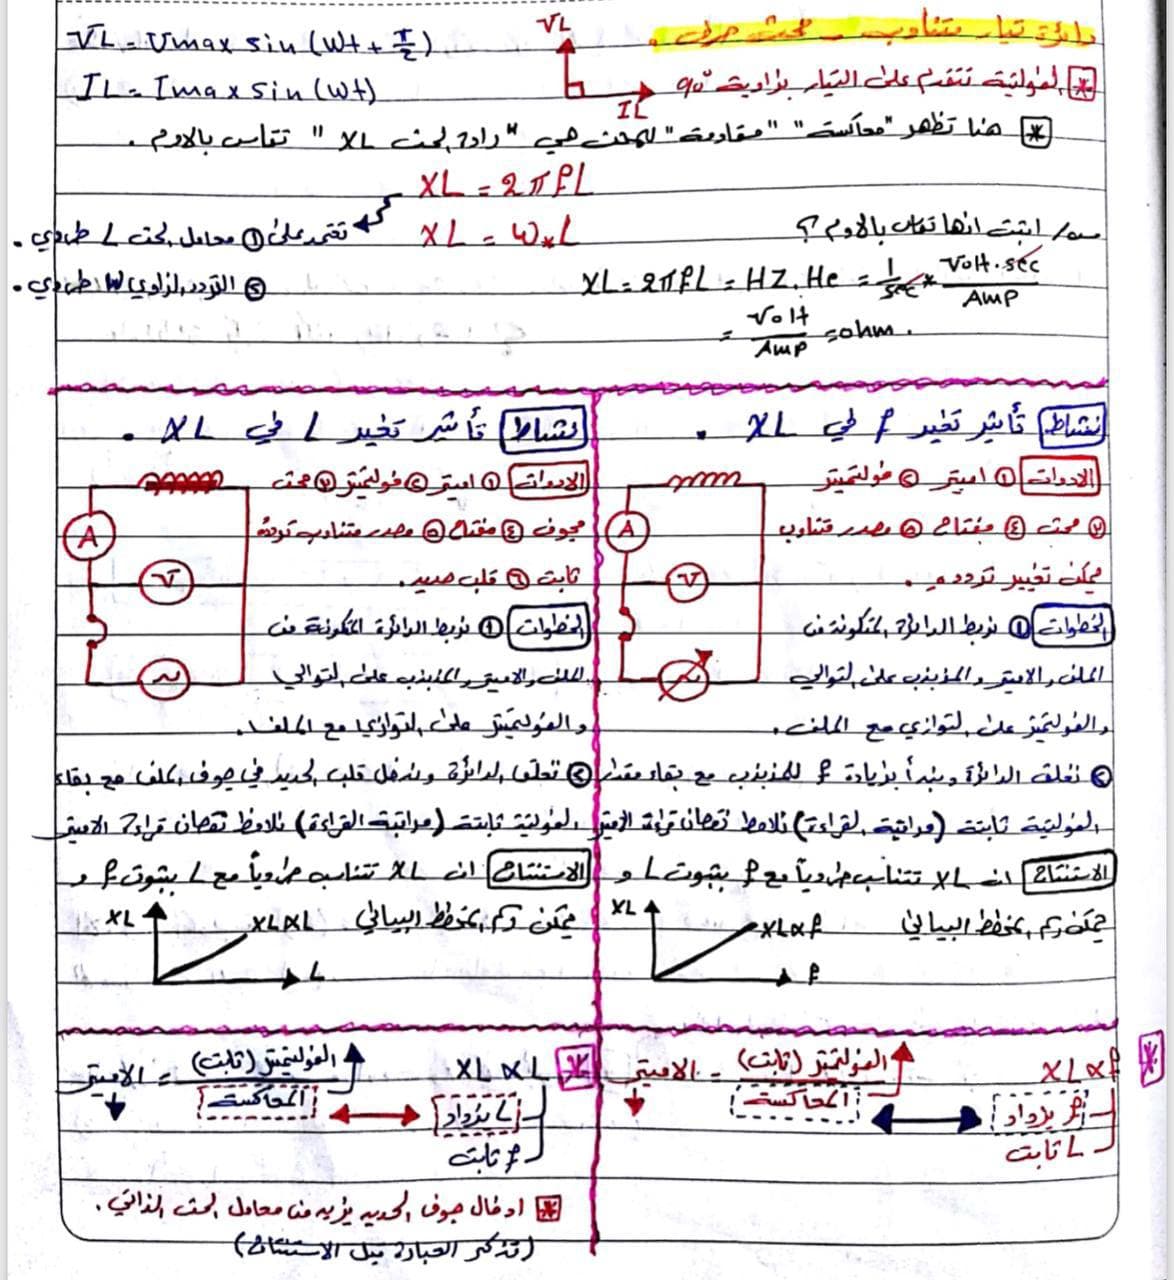 دائرة تيار متناوب - محث صرف.
VL = Vmax sin (wt + π/2)
IL = Imax sin (wt)
VL
IL
* الفولتية تتقدم على التيار بزاوية 90°
* هنا تظهر "معاكسة" "مقاومة" للمحث هي "رادة الحث XL" تقاس بالاوم.
XL = 2πfL
XL = w*L
تعتمد على ① معامل الحث L طردي.
② التردد الزاوي W طردي.
س/ اثبت انها تقاس بالاوم؟
XL = 2πfL = HZ . He = 1/sec * Volt.sec/AMP
= Volt/AMP = ohm.
نشاط تأثير تغير f في XL.
الادوات ① اميتر ② فولتميتر
③ محث ④ مفتاح ⑤ مصدر متناوب
يمكن تغيير تردده.
A
V
الخطوات ① نربط الدائرة المتكونة من
الملف والاميتر والمذبذب على التوالي
والفولتميتر على التوازي مع الملف.
② نغلق الدائرة ونبدأ بزيادة f للمذبذب مع بقاء مقدار
الفولتية ثابتة (مراقبة القراءة) نلاحظ نقصان قراءة الاميتر
الاستنتاج ان XL تتناسب طردياً مع f بثبوت L و
يمكن رسم المخطط البياني
XL
XL∝f
f
نشاط تأثير تغير L في XL.
الادوات ① اميتر ② فولتميتر ③ محث
مجوف ④ مفتاح ⑤ مصدر متناوب تردده
ثابت ⑥ قلب حديد.
A
V
~
الخطوات ① نربط الدائرة المتكونة من
الملف والاميتر والمذبذب على التوالي
والفولتميتر على التوازي مع الملف.
② نغلق الدائرة وندخل قلب الحديد في جوف الملف مع بقاء
الفولتية ثابتة (مراقبة القراءة) نلاحظ نقصان قراءة الاميتر
الاستنتاج ان XL تتناسب طردياً مع L بثبوت f و
يمكن رسم المخطط البياني
XL
XL∝L
L
* XL∝f
f يزداد
L ثابت
الاميتر = الفولتميتر (ثابت)
المعاكسة
* XL∝L
L يزداد
f ثابت
الاميتر = الفولتميتر (ثابت)
المعاكسة
* ادخال جوف الحديد يزيد من معامل الحث الذاتي.
(تذكر العبارة قبل الاستنتاج)